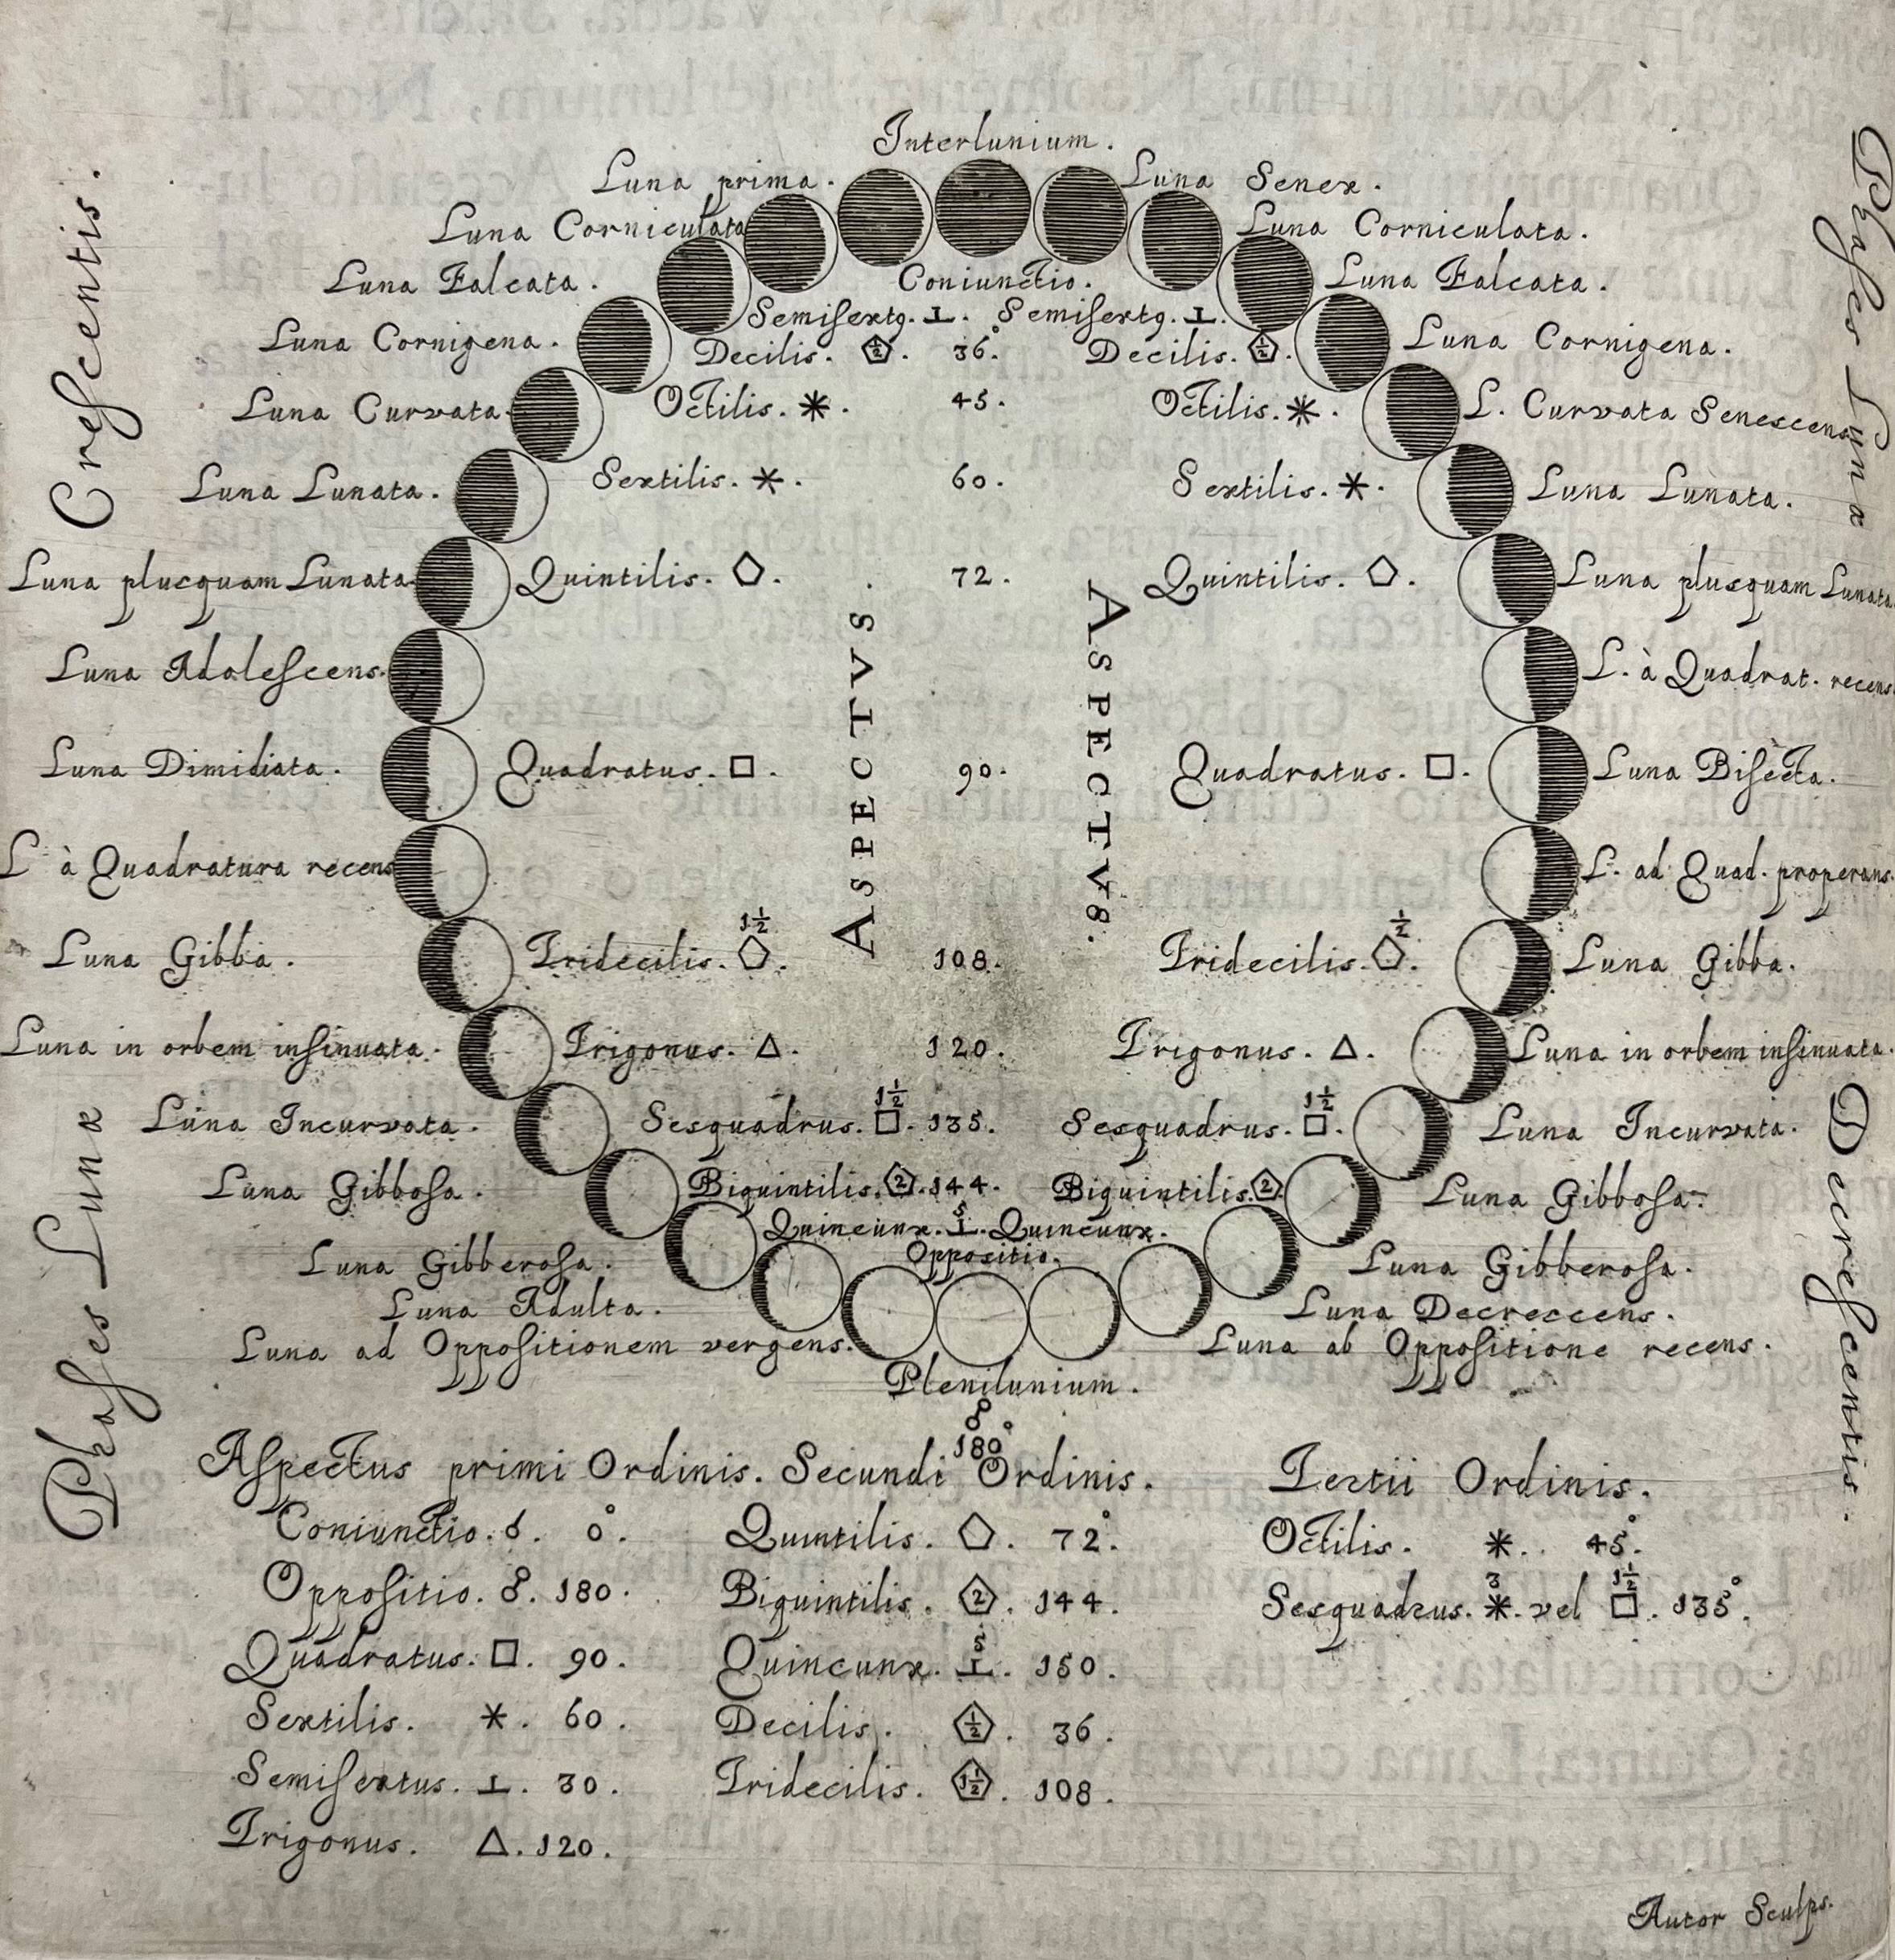 Interlunium.
Luna prima. Luna Senex.
Luna Corniculata Luna Corniculata.
Coniunctio.
Luna Falcata. Luna Falcata.
Semisextq. ⊥. Semisextq. ⊥.
Luna Cornigena. Decilis. ½. 36°. Decilis. ½. Luna Cornigena.
Luna Curvata. Octilis. ✳. 45. Octilis. ✳. L. Curvata Senescens
Luna Lunata. Sextilis. ⚹. 60. Sextilis. ⚹. Luna Lunata.
Luna plusquam Lunata Quintilis. ⬠. 72. Quintilis. ⬠. Luna plusquam Lunata
Luna Adolescens. L. à Quadrat. recens
Luna Dimidiata. Quadratus. □. 90. Quadratus. □. Luna Bisecta.
L à Quadratura recens L. ad Quad. properans.
Luna Gibba. Tridecilis. 1½ ⬠. 108. Tridecilis. ½ ⬠. Luna Gibba.
Luna in orbem insinuata. Trigonus. △. 120. Trigonus. △. Luna in orbem insinuata.
Luna Incurvata. Sesquadrus. 1½ □. 135. Sesquadrus. 1½ □. Luna Incurvata.
Luna Gibbosa. Biquintilis. 2. 144. Biquintilis. 2. Luna Gibbosa.
Quincunx. 5 ⊥. Quincunx.
Oppositio.
Luna Gibberosa. Luna Gibberosa.
Luna Adulta. Luna Decrescens.
Luna ad Oppositionem vergens. Luna ab Oppositione recens.
Plenilunium.
☍
180°
ASPECTVS.
ASPECTVS.
Phases Lunæ Crescentis.
Phases Lunæ Decrescentis.
Aspectus primi Ordinis. Secundi Ordinis. Tertii Ordinis.
Coniunctio. ☌. 0°. Quintilis. ⬠. 72°. Octilis. ✳. 45°.
Oppositio. ☍. 180. Biquintilis. 2. 144. Sesquadrus. 3 ✳. vel 1½ □. 135°.
Quadratus. □. 90. Quincunx. 5 ⊥. 150.
Sextilis. ⚹. 60. Decilis. ½. 36.
Semisextus. ⊥. 30. Tridecilis. 1½. 108.
Trigonus. △. 120.
Autor Sculps.